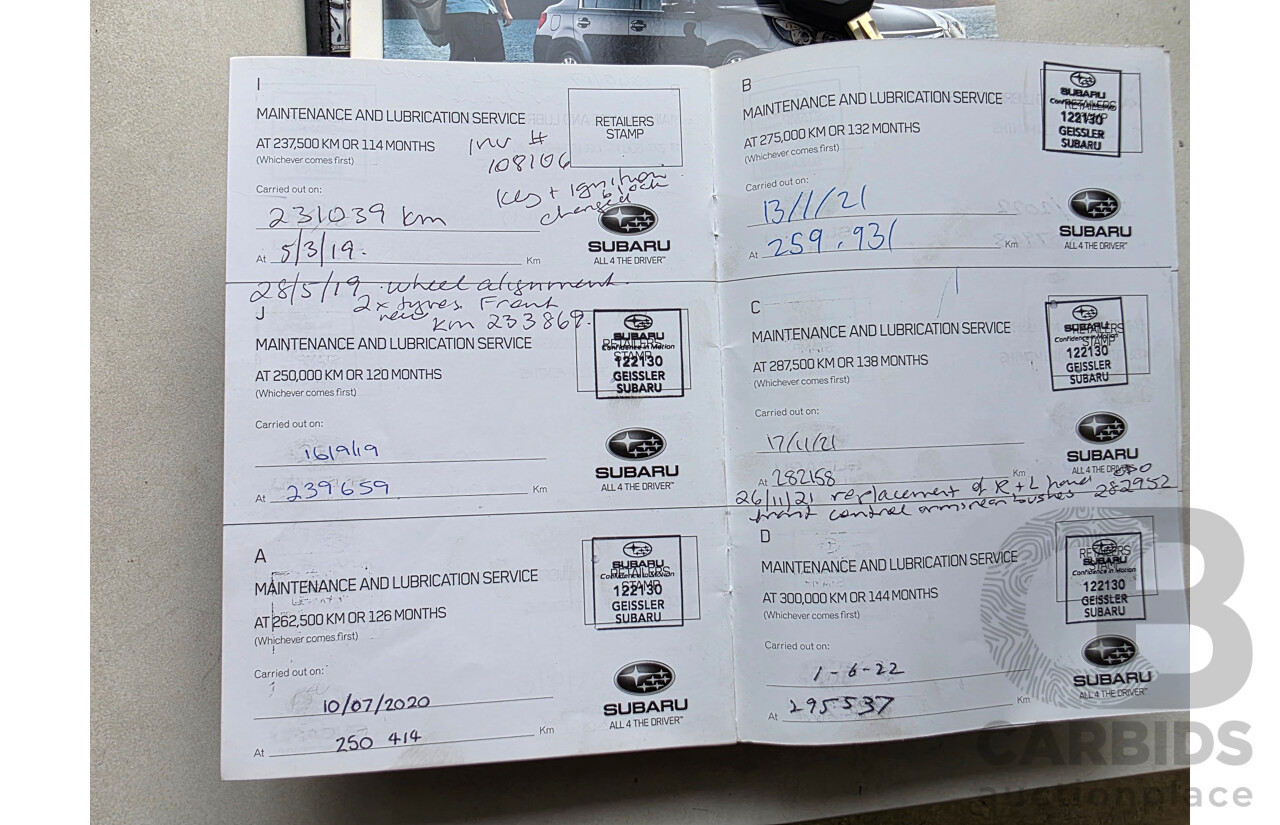 I
MAINTENANCE AND LUBRICATION SERVICE
RETAILERS
STAMP
AT 237,500 KM OR 114 MONTHS
(Whichever comes first)
Inv #
108106
Key + Ignition
block
changed
Carried out on:
231039 km
At 5/3/19. Km
SUBARU
ALL 4 THE DRIVER™
28/5/19 . wheel alignment.
2x tyres Front
new
Km 233869.
J
MAINTENANCE AND LUBRICATION SERVICE
AT 250,000 KM OR 120 MONTHS
(Whichever comes first)
RETAILERS
STAMP
SUBARU
Confidence in Motion
122130
GEISSLER
SUBARU
Carried out on:
16/9/19
At 239659 Km
SUBARU
ALL 4 THE DRIVER™
A
MAINTENANCE AND LUBRICATION SERVICE
AT 262,500 KM OR 126 MONTHS
(Whichever comes first)
RETAILERS
STAMP
SUBARU
Confidence in Motion
122130
GEISSLER
SUBARU
Carried out on:
10/07/2020
At 250 414 Km
SUBARU
ALL 4 THE DRIVER™
B
MAINTENANCE AND LUBRICATION SERVICE
AT 275,000 KM OR 132 MONTHS
(Whichever comes first)
RETAILERS
STAMP
SUBARU
Confidence in Motion
122130
GEISSLER
SUBARU
Carried out on:
13/1/21
At 259,931 Km
SUBARU
ALL 4 THE DRIVER™
C
MAINTENANCE AND LUBRICATION SERVICE
AT 287,500 KM OR 138 MONTHS
(Whichever comes first)
RETAILERS
STAMP
SUBARU
Confidence in Motion
122130
GEISSLER
SUBARU
Carried out on:
17/11/21
At 282158 Km
SUBARU
ALL 4 THE DRIVER™
26/11/21 replacement of R + L hand
front control arms rear bushes 282952
D
MAINTENANCE AND LUBRICATION SERVICE
AT 300,000 KM OR 144 MONTHS
(Whichever comes first)
RETAILERS
STAMP
SUBARU
Confidence in Motion
122130
GEISSLER
SUBARU
Carried out on:
1-6-22
At 295537 Km
SUBARU
ALL 4 THE DRIVER™
CARBIDS
auctionplace